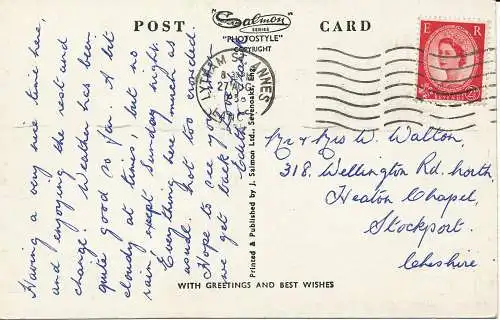 POST CARD
Salmon
SERIES
"PHOTOSTYLE"
COPYRIGHT
LYTHAM ST. ANNES
LANCS
E R
Having a very nice time here,
and enjoying the rest and
change. Weather has been
quite good so far. A bit
cloudy at times, but no
rain, exept Sunday night.
Everything here much as
usual. Not too crowded.
Hope to see you
we get back.
Edith
Printed & Published by J. Salmon Ltd., Sevenoaks, Eng.
Mr & Mrs W. Walton,
318, Wellington Rd. North,
Heaton Chapel,
Stockport.
Cheshire
WITH GREETINGS AND BEST WISHES